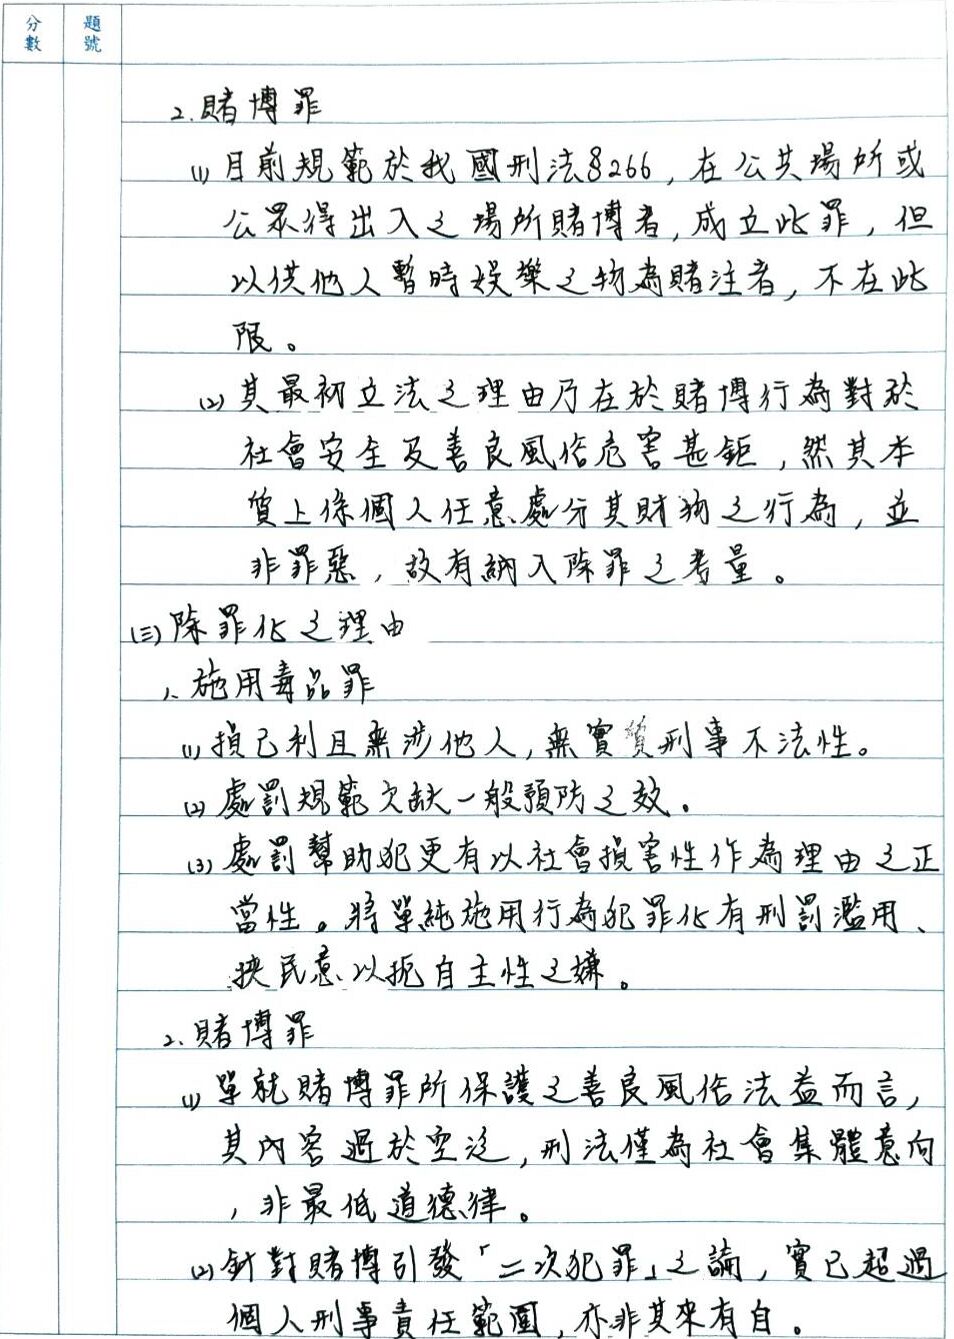 分數 題號
2.賭博罪
(1)目前規範於我國刑法§266,在公共場所或
公眾得出入之場所賭博者,成立此罪,但
以供他人暫時娛樂之物為賭注者,不在此
限。
(2)其最初立法之理由乃在於賭博行為對於
社會安全及善良風俗危害甚鉅,然其本
質上係個人任意處分其財物之行為,並
非罪惡,故有納入除罪之考量。
(三)除罪化之理由
1.施用毒品罪
(1)損己利且無涉他人,無實質刑事不法性。
(2)處罰規範欠缺一般預防之效。
(3)處罰幫助犯更有以社會損害性作為理由之正
當性。將單純施用行為犯罪化有刑罰濫用、
挾民意以扼自主性之嫌。
2.賭博罪
(1)單就賭博罪所保護之善良風俗法益而言,
其內容過於空泛,刑法僅為社會集體意向
,非最低道德律。
(2)針對賭博引發「二次犯罪」之論,實已超過
個人刑事責任範圍,亦非其來有自。